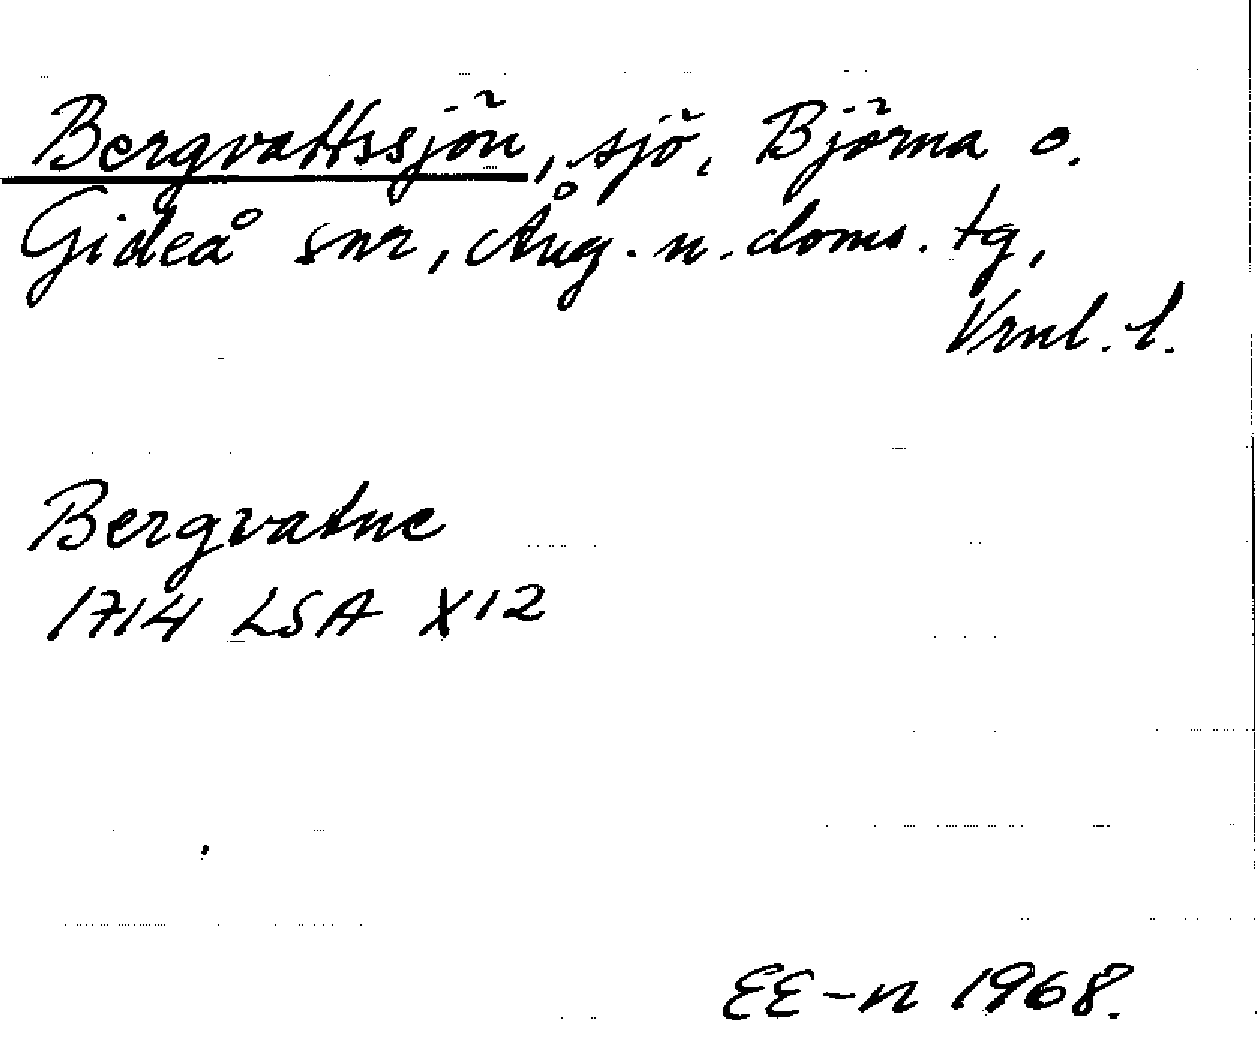 Bergvattssjön, sjö, Björna o.
Gideå snr, Ång. n. doms. tg,
Vrnl. l.
Bergvatne
1714 LSA X12
EE-n 1968.